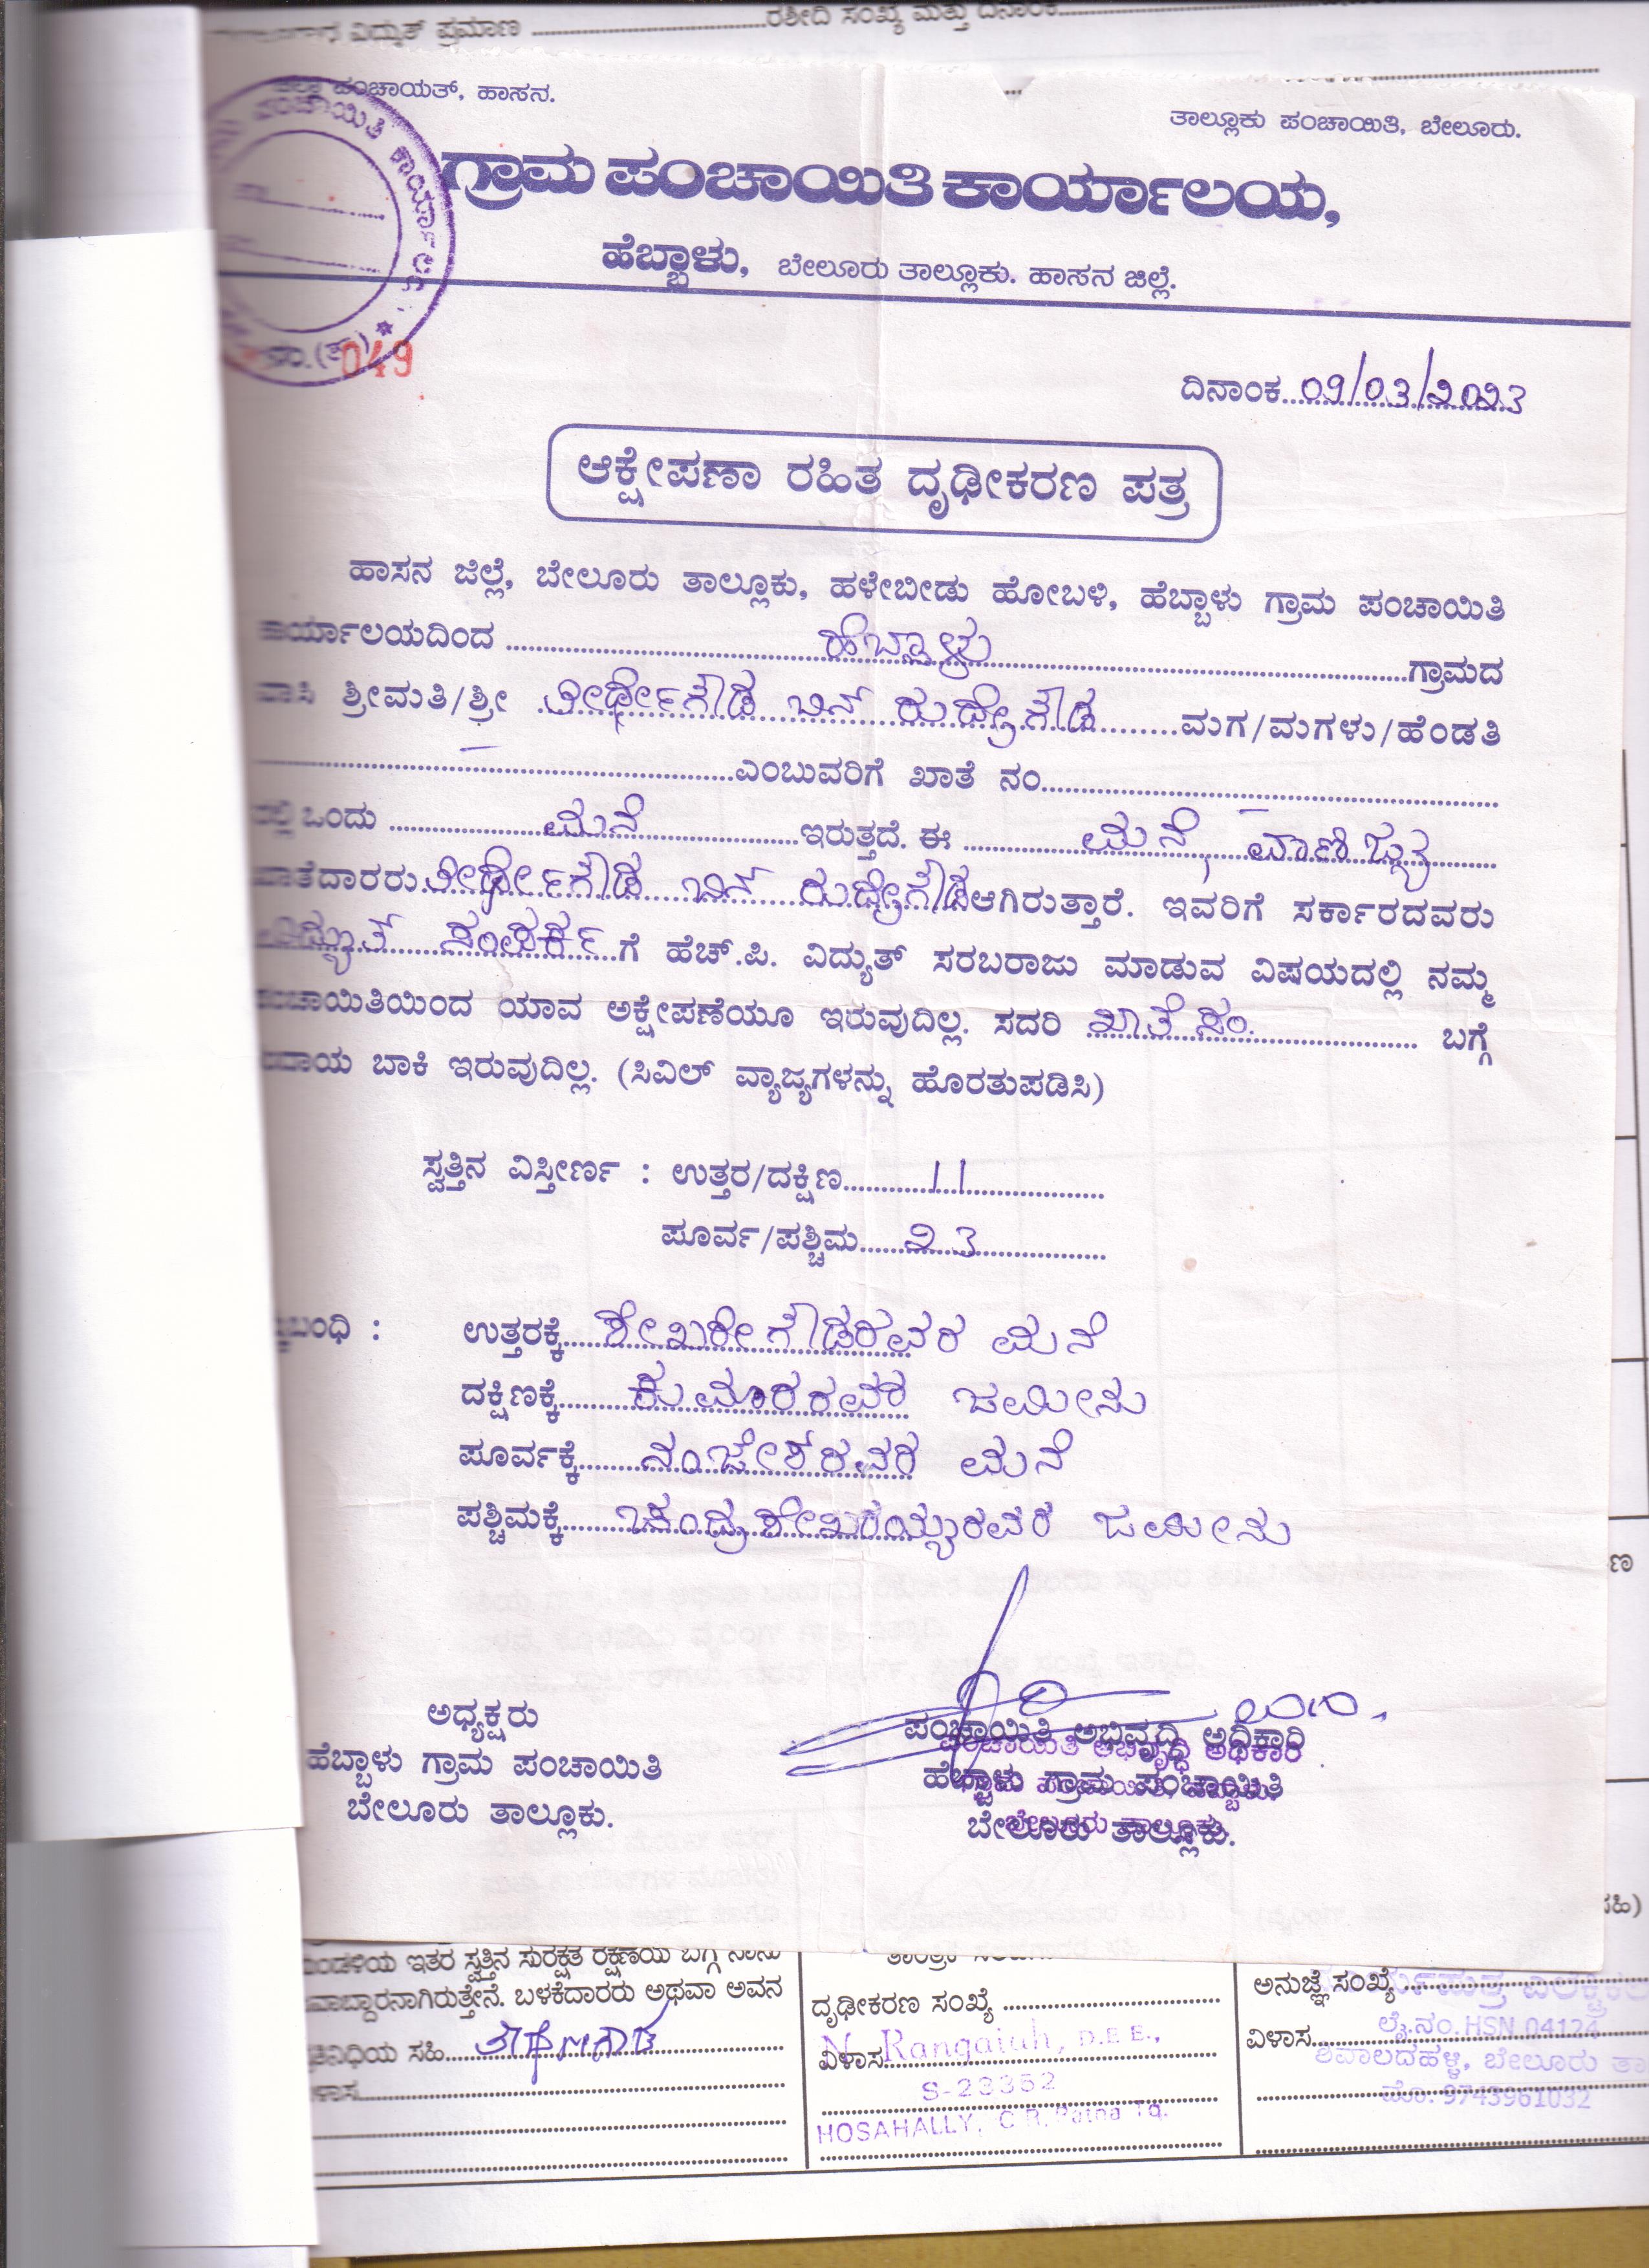 ವಿದ್ಯುತ್ ಪ್ರಮಾಣ ..........ರಶೀದಿ ಸಂಖ್ಯೆ ಮತ್ತು ದಿನಾಂಕ..........
ಜಿಲ್ಲಾ ಪಂಚಾಯತ್, ಹಾಸನ.
ತಾಲ್ಲೂಕು ಪಂಚಾಯಿತಿ, ಬೇಲೂರು.
ಪಂಚಾಯಿತಿ ಕಾರ್ಯಾಲಯ
ಗ್ರಾಮ ಪಂಚಾಯಿತಿ ಕಾರ್ಯಾಲಯ,
ಹೆಬ್ಬಾಳು, ಬೇಲೂರು ತಾಲ್ಲೂಕು. ಹಾಸನ ಜಿಲ್ಲೆ.
049
ದಿನಾಂಕ...09/03/೨೦೨3
ಆಕ್ಷೇಪಣಾ ರಹಿತ ದೃಢೀಕರಣ ಪತ್ರ
ಹಾಸನ ಜಿಲ್ಲೆ, ಬೇಲೂರು ತಾಲ್ಲೂಕು, ಹಳೇಬೀಡು ಹೋಬಳಿ, ಹೆಬ್ಬಾಳು ಗ್ರಾಮ ಪಂಚಾಯಿತಿ
ಕಾರ್ಯಾಲಯದಿಂದ ..........ಹೆಬ್ಬಾಳು..........ಗ್ರಾಮದ
ವಾಸಿ ಶ್ರೀಮತಿ/ಶ್ರೀ ..ತೀರ್ಥೇಗೌಡ ಬಿನ್ ರುದ್ರೇಗೌಡ.....ಮಗ/ಮಗಳು/ಹೆಂಡತಿ
..........—..........ಎಂಬುವರಿಗೆ ಖಾತೆ ನಂ..........—..........
ರಲ್ಲಿ ಒಂದು ..........ಮನೆ..........ಇರುತ್ತದೆ. ಈ ..........ಮನೆ, ವಾಣಿಜ್ಯ.....
ಖಾತೆದಾರರು.ತೀರ್ಥೇಗೌಡ ಬಿನ್ ರುದ್ರೇಗೌಡ ಆಗಿರುತ್ತಾರೆ. ಇವರಿಗೆ ಸರ್ಕಾರದವರು
ವಿದ್ಯುತ್ ಸಂಪರ್ಕ....ಗೆ ಹೆಚ್.ಪಿ. ವಿದ್ಯುತ್ ಸರಬರಾಜು ಮಾಡುವ ವಿಷಯದಲ್ಲಿ ನಮ್ಮ
ಪಂಚಾಯಿತಿಯಿಂದ ಯಾವ ಅಕ್ಷೇಪಣೆಯೂ ಇರುವುದಿಲ್ಲ. ಸದರಿ ಖಾತೆ ನಂ........... ಬಗ್ಗೆ
ಕಂದಾಯ ಬಾಕಿ ಇರುವುದಿಲ್ಲ. (ಸಿವಿಲ್ ವ್ಯಾಜ್ಯಗಳನ್ನು ಹೊರತುಪಡಿಸಿ)
ಸ್ವತ್ತಿನ ವಿಸ್ತೀರ್ಣ : ಉತ್ತರ/ದಕ್ಷಿಣ..........11..........
ಪೂರ್ವ/ಪಶ್ಚಿಮ......೨3..........
ಚಕ್ಕುಬಂಧಿ :
ಉತ್ತರಕ್ಕೆ.....ಶೇಖರೇಗೌಡರವರ ಮನೆ
ದಕ್ಷಿಣಕ್ಕೆ.....ಕುಮಾರರವರ ಜಮೀನು
ಪೂರ್ವಕ್ಕೆ.....ನಂಜೇಶರವರ ಮನೆ
ಪಶ್ಚಿಮಕ್ಕೆ.....ಚಂದ್ರಶೇಖರಯ್ಯರವರ ಜಮೀನು
ಅಧ್ಯಕ್ಷರು
ಹೆಬ್ಬಾಳು ಗ್ರಾಮ ಪಂಚಾಯಿತಿ
ಬೇಲೂರು ತಾಲ್ಲೂಕು.
ಪಂಚಾಯಿತಿ ಅಭಿವೃದ್ಧಿ ಅಧಿಕಾರಿ
ಹೆಬ್ಬಾಳು ಗ್ರಾಮ ಪಂಚಾಯಿತಿ
ಬೇಲೂರು ತಾಲ್ಲೂಕು.
ಇತರ ಸ್ವತ್ತಿನ ಸುರಕ್ಷತ ರಕ್ಷಣೆಯ ಬಗ್ಗೆ ನಾನು
ಜವಾಬ್ದಾರನಾಗಿರುತ್ತೇನೆ. ಬಳಕೆದಾರರು ಅಥವಾ ಅವನ
ಪ್ರತಿನಿಧಿಯ ಸಹಿ.....
ವಿಳಾಸ..........
ದೃಢೀಕರಣ ಸಂಖ್ಯೆ ..........
ವಿಳಾಸ..........
N. Rangaiah, D.E.E.,
S-23352
HOSAHALLY, C.R. Patna Tq.
ಅನುಜ್ಞೆ ಸಂಖ್ಯೆ..........
ವಿಳಾಸ..........
ಲೈ.ನಂ.HSN 04124
ಶಿವಾಲದಹಳ್ಳಿ, ಬೇಲೂರು ತಾ
ಮೊ. 9743961032